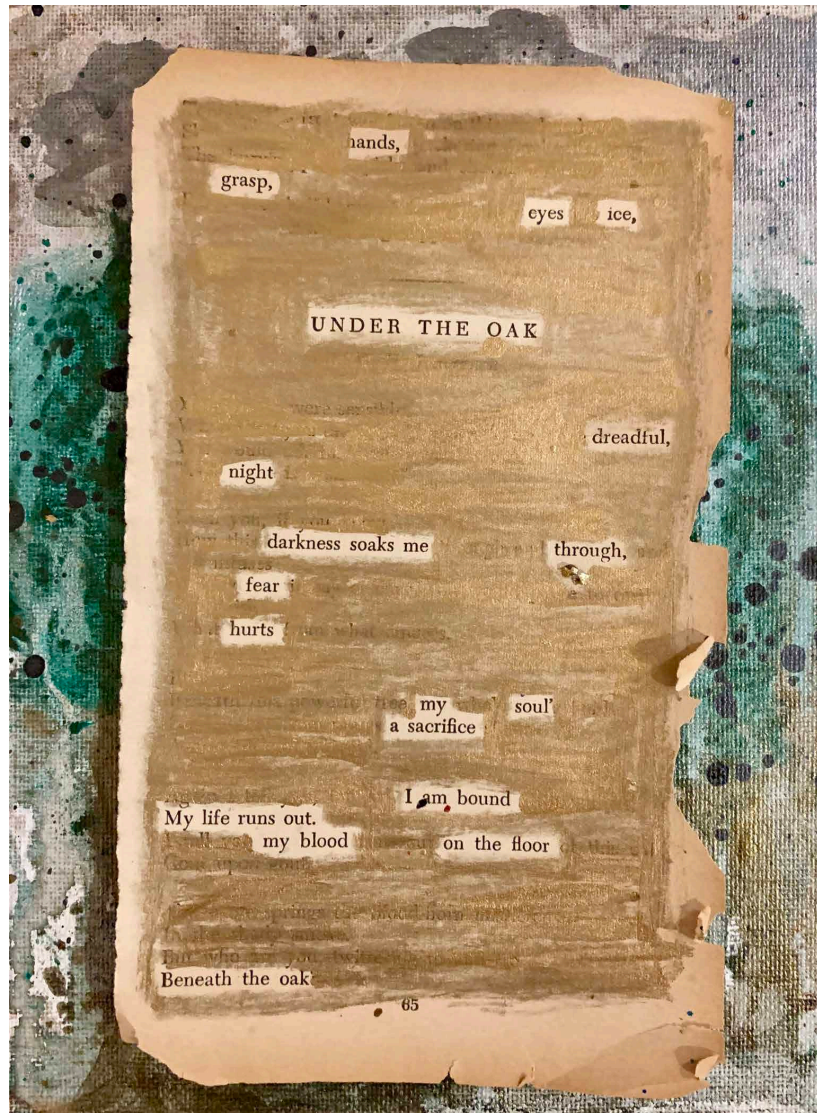 hands,
grasp,
eyes ice,
UNDER THE OAK
dreadful,
night
darkness soaks me through,
fear
hurts
my soul'
a sacrifice
I am bound
My life runs out.
my blood on the floor
springs the blood from
Beneath the oak
65